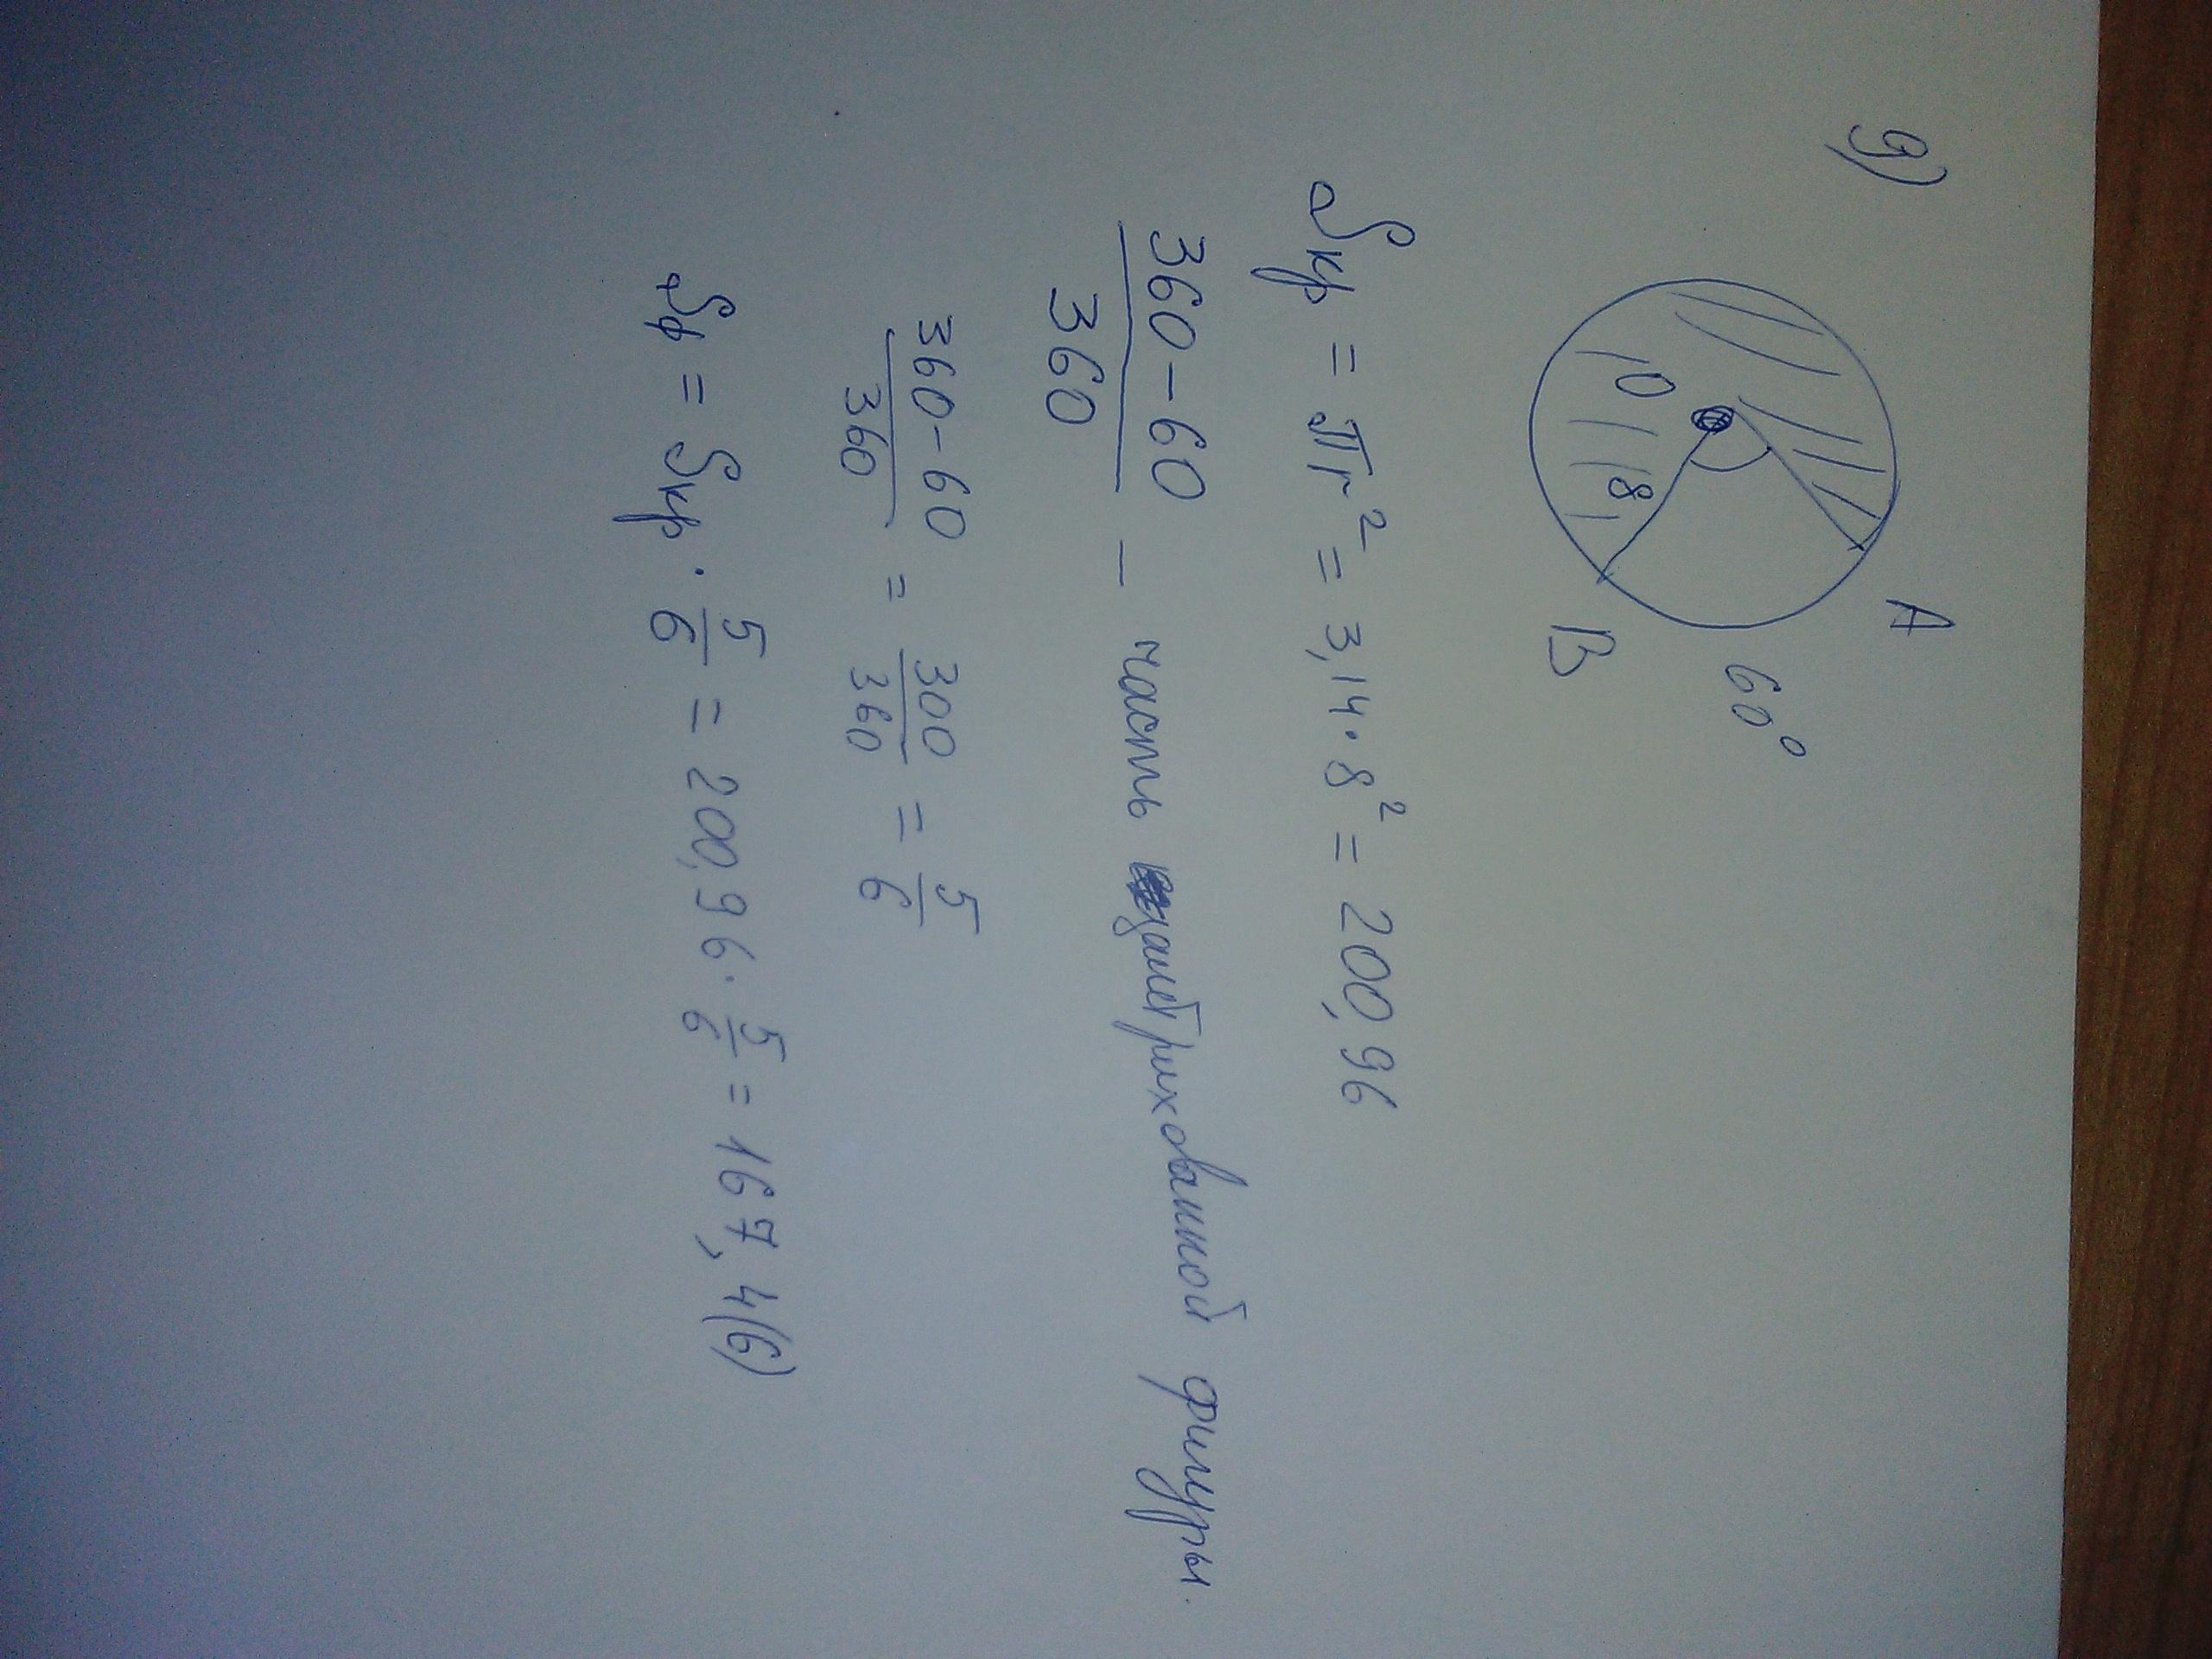 9)
A
60°
10 8
B
Sкр = πr² = 3,14·8² = 200,96
360-60/360 - часть заштрихованной фигуры.
360-60/360 = 300/360 = 5/6
Sф = Sкр · 5/6 = 200,96 · 5/6 = 167,4(6)